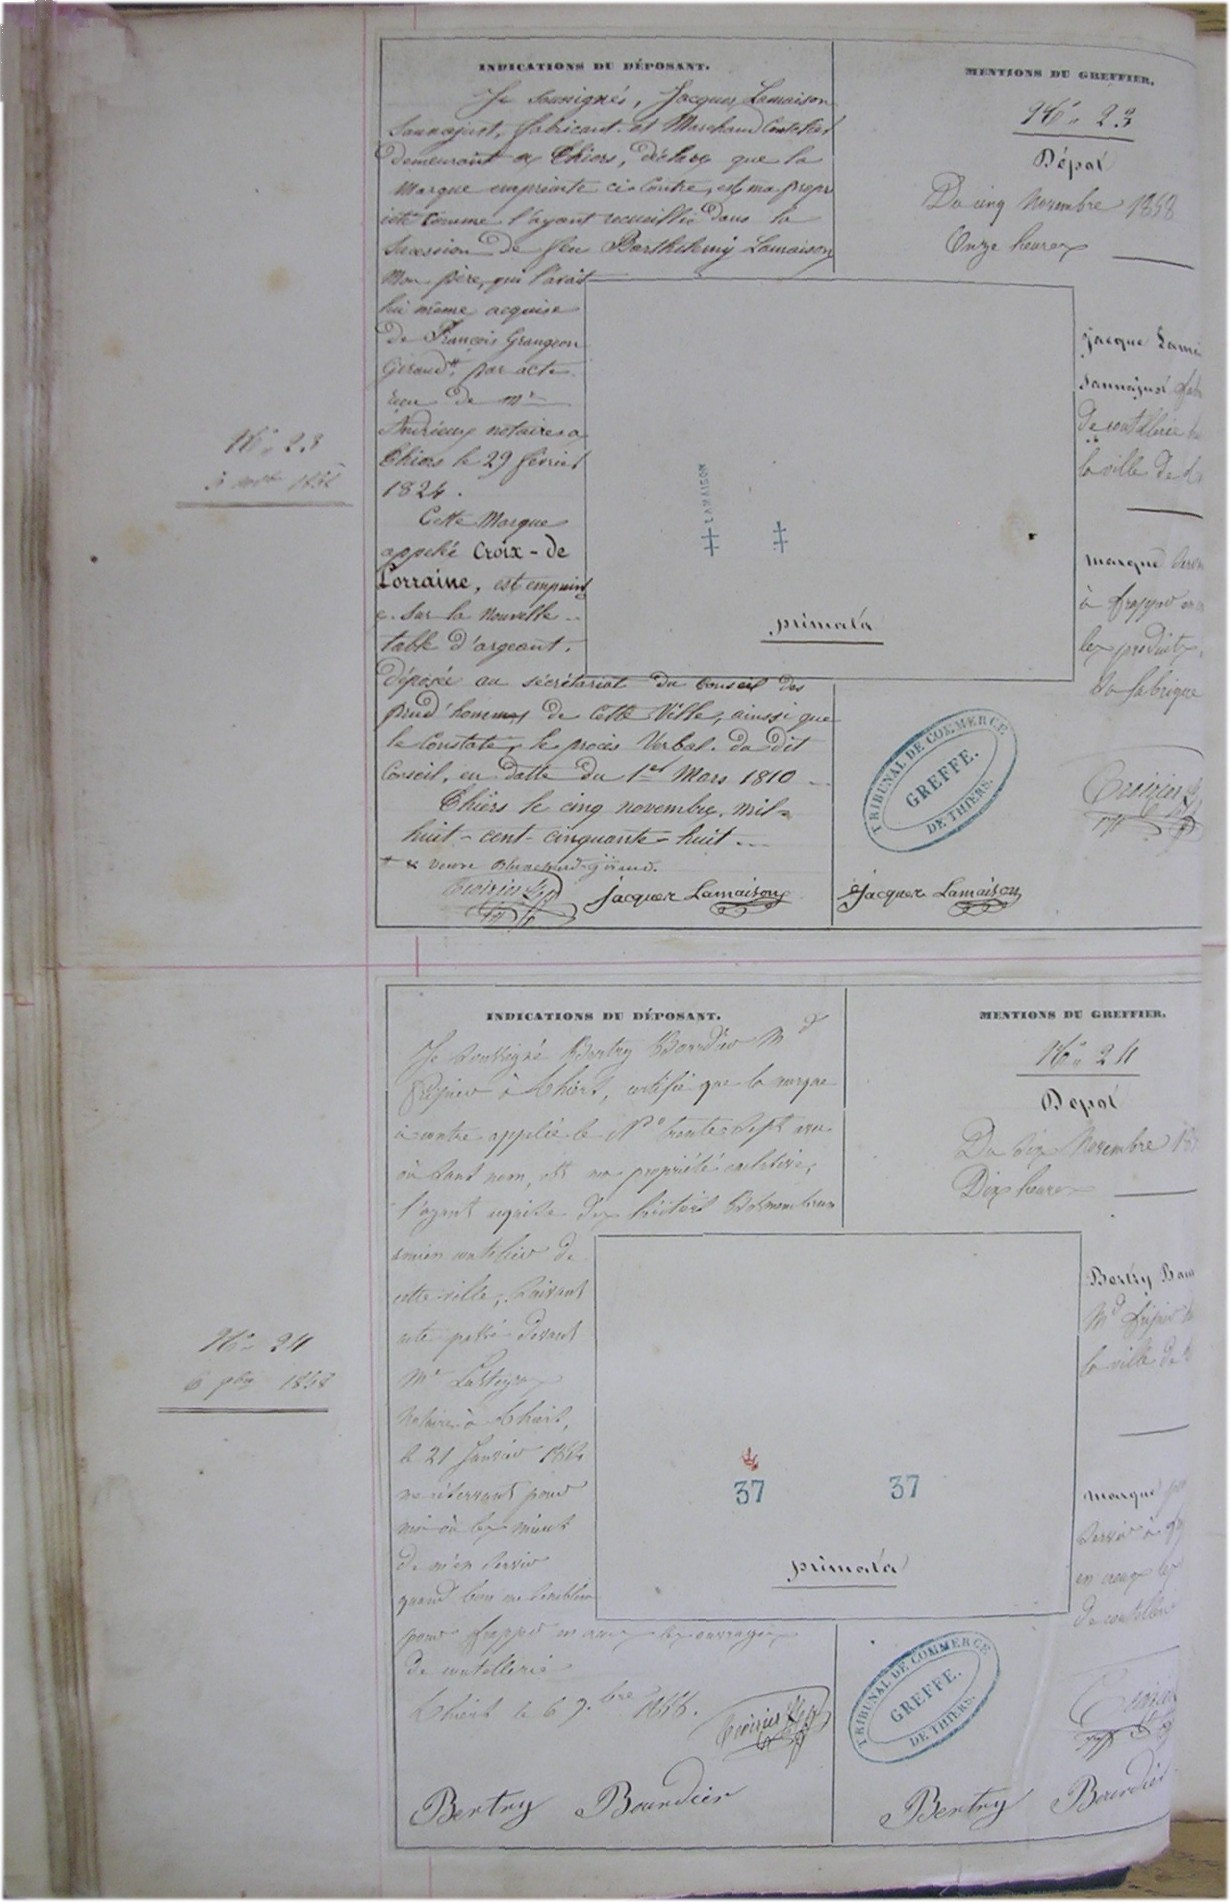 INDICATIONS DU DÉPOSANT.
Je soussigné, Jacques Lamaison
Sannajust, fabricant et Marchand Coutelier
demeurant à Thiers, déclare que la
Marque empreinte ci-contre, est ma propri
été comme l'ayant recueillie dans la
Succession de feu Barthélemy Lamaison
Mon père, qui l'avait
lui même acquise
de François Grangeon
Giraud * par acte
reçu de Me
Andrieux notaire a
Thiers le 29 février
1824.
Cette Marque
appelée Croix-de
Lorraine, est empreint
e sur la Nouvelle
table d'argeant,
déposée au sécrétariat du Conseil des
prud'hommes de cette Ville, ainssi que
le Constate le procès Verbal du dit
Conseil, en datte du 1er Mars 1810
Thiers le cinq novembre mil-
huit-cent-cinquante-huit
veuve Giraud.
Jacques Lamaison
MENTIONS DU GREFFIER.
No 23
Dépôt
Du cinq Novembre 1858
Onze heures
LAMAISON
primata
Jacque Lamai
Sannajust fab
de coutellerie
la ville de
marque
à frapper
les produits
sa fabrique
TRIBUNAL DE COMMERCE
GREFFE.
DE THIERS.
Jacques Lamaison
No 23
5 1858
INDICATIONS DU DÉPOSANT.
Je soussigné Bertry Bourdier Md
fripier à Thiers, certifie que la marque
ci contre appelée le No trente sept avec
ou sant nom, est ma propriété exclusive,
l'ayant acquise des héritiers
ancien coutelier de
cette ville, suivant
acte passé devant
Me Lasteyras
Notaire à Thiers,
le 21 Janvier
me réservant pour
moi ou les miens
de m'en servir
quand bon me semblera
pour frapper en creux les ouvrages
de coutellerie
Thiers le 6 9.bre 1858.
Bertry Bourdier
MENTIONS DU GREFFIER.
No 24
Depôt
Du six Novembre 18
Dix heures
37 37
primata
Bertry Bou
Md fripier
la ville de
marque
servir à
en creux les
de coutellerie
TRIBUNAL DE COMMERCE
GREFFE.
DE THIERS.
Bertry Bourdier
No 24
6 9bre 1858